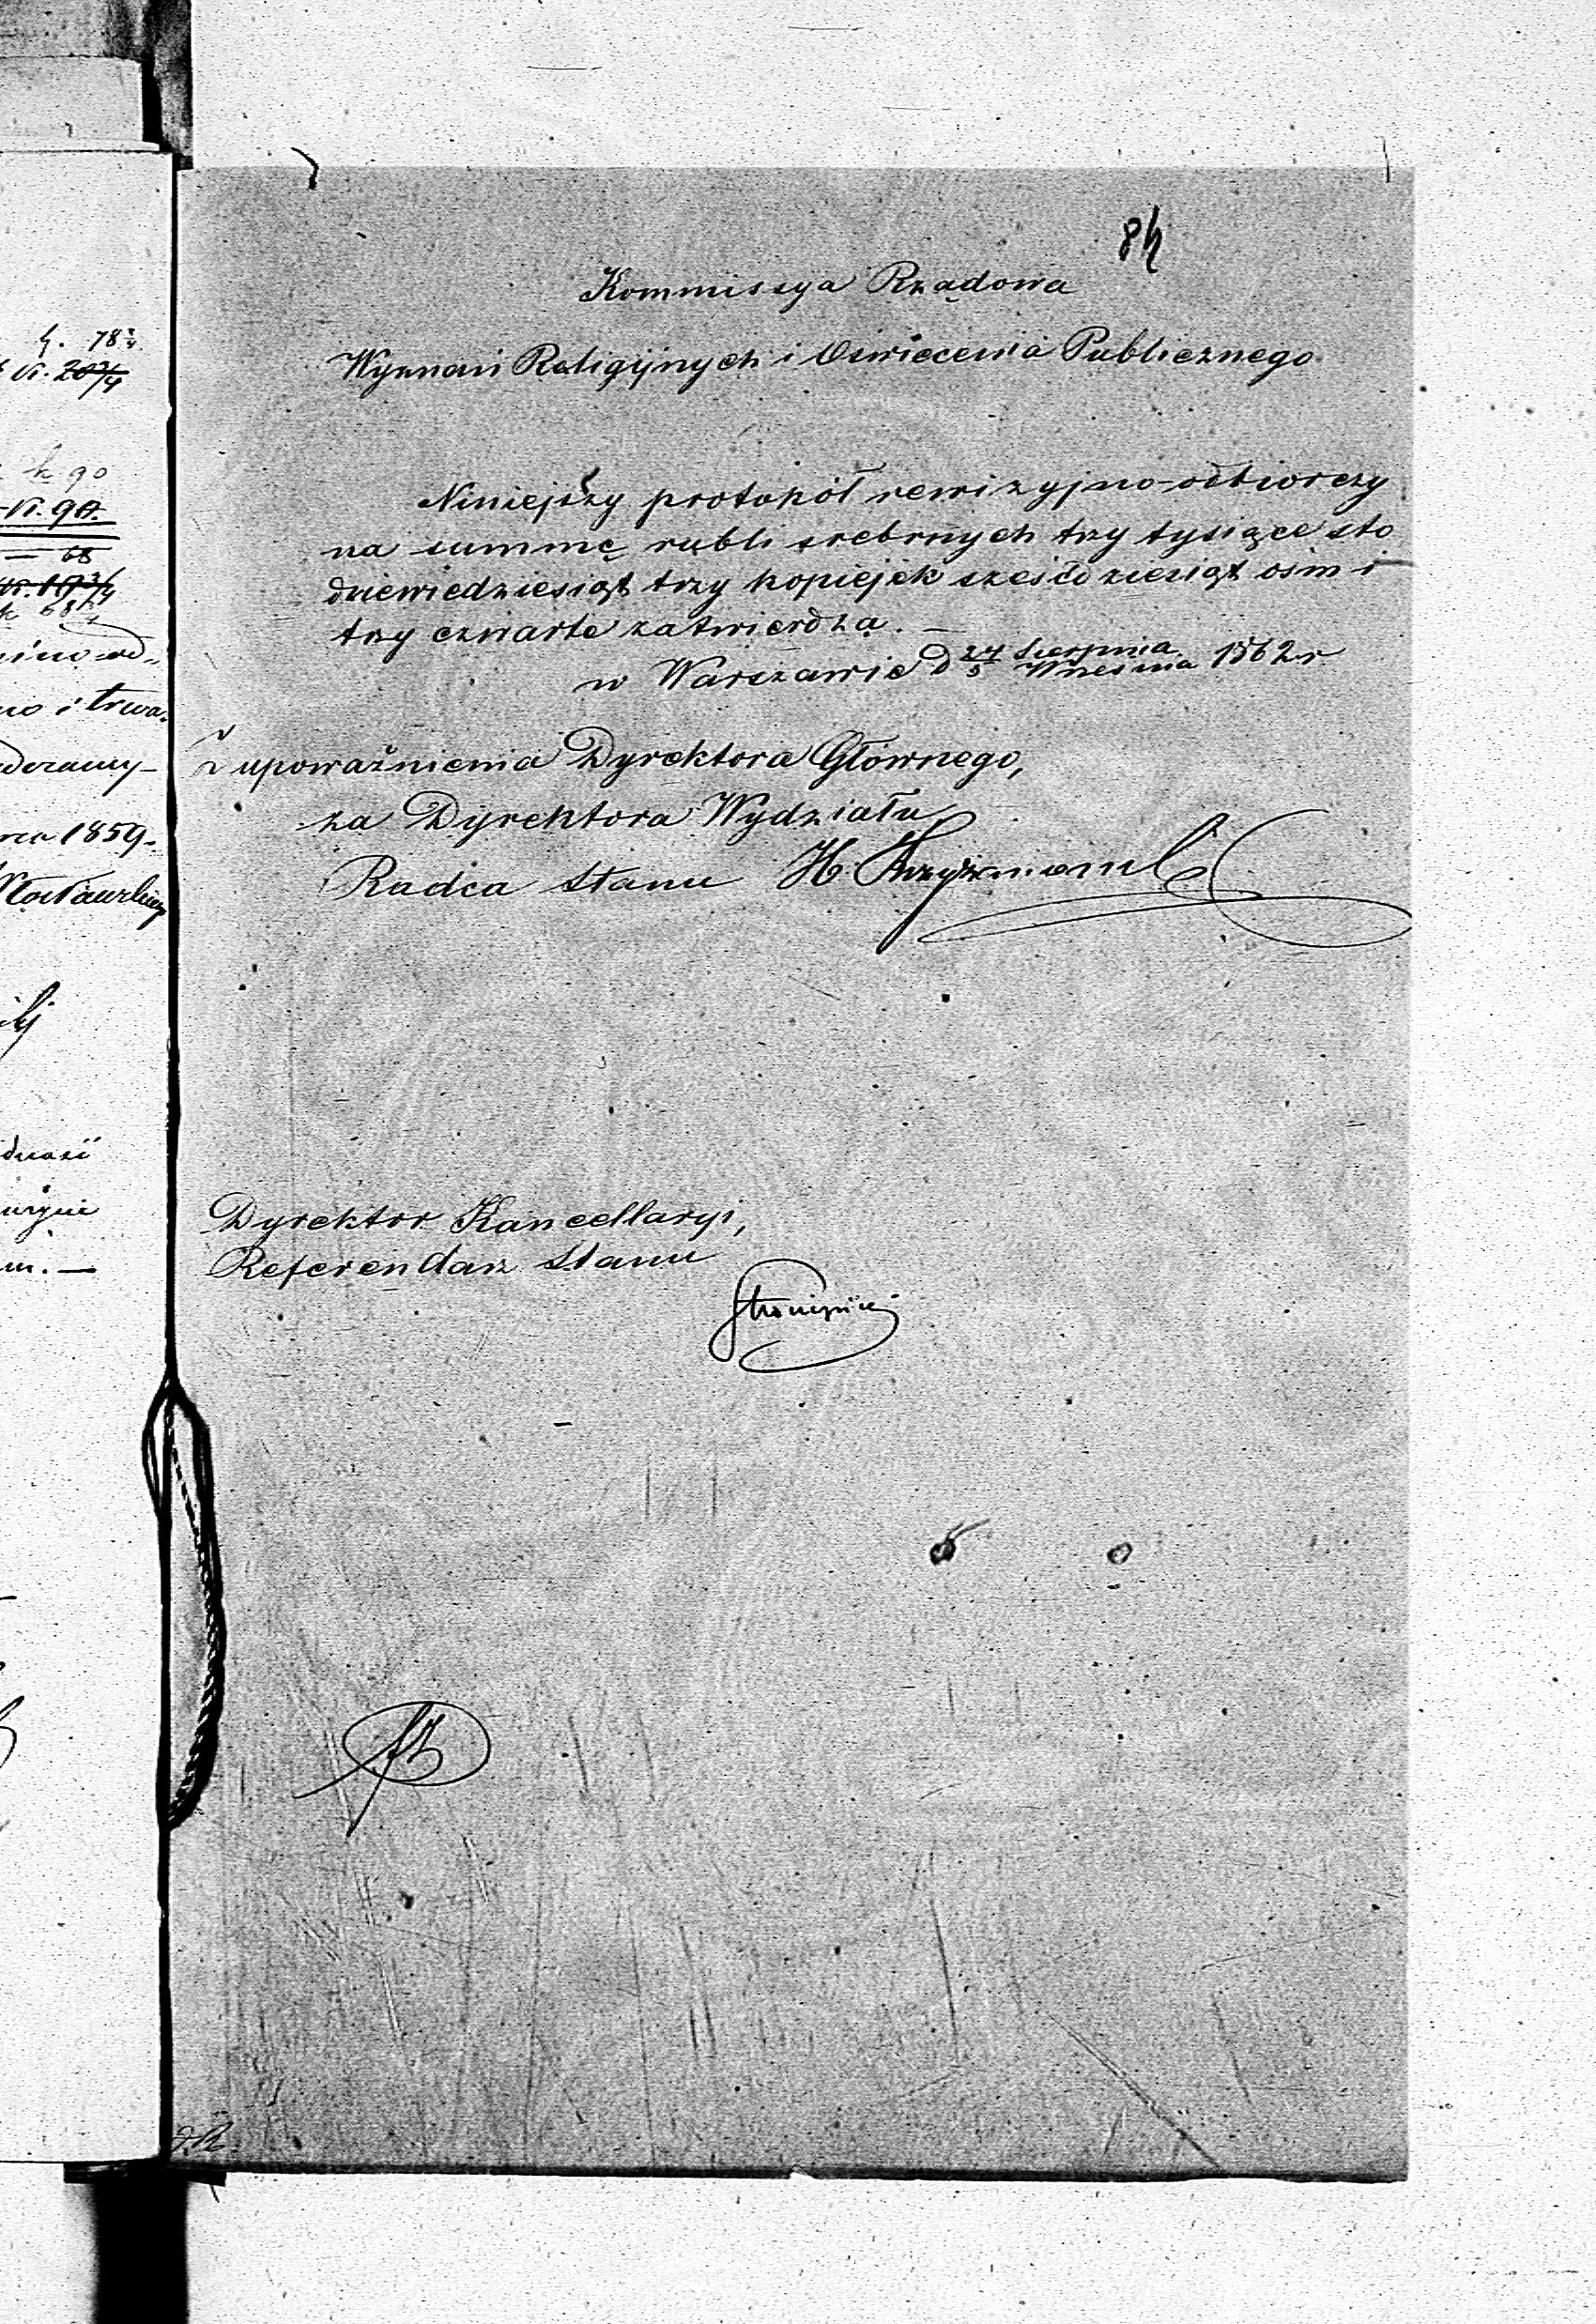 84
Kommissya Rządowa
Wyznań Religijnych i Oświecenia Publicznego
Niniejszy protokół rewizyjno-odbiorczy
na summę rubli srebrnych trzy tysiące sto
dziewiedziesiąt trzy kopiejek sześćdziesiąt ośm i
trzy czwarte zatwierdza. —
w Warszawie d 24/5 Sierpnia/Września 1862 r
Z upoważnienia Dyrektora Głównego,
za Dyrektora Wydziału
Radca Stanu H.
Dyrektor Kancellaryi,
Referendarz Stanu
78 3/4
k 90
90.
68
i trwa
1859.